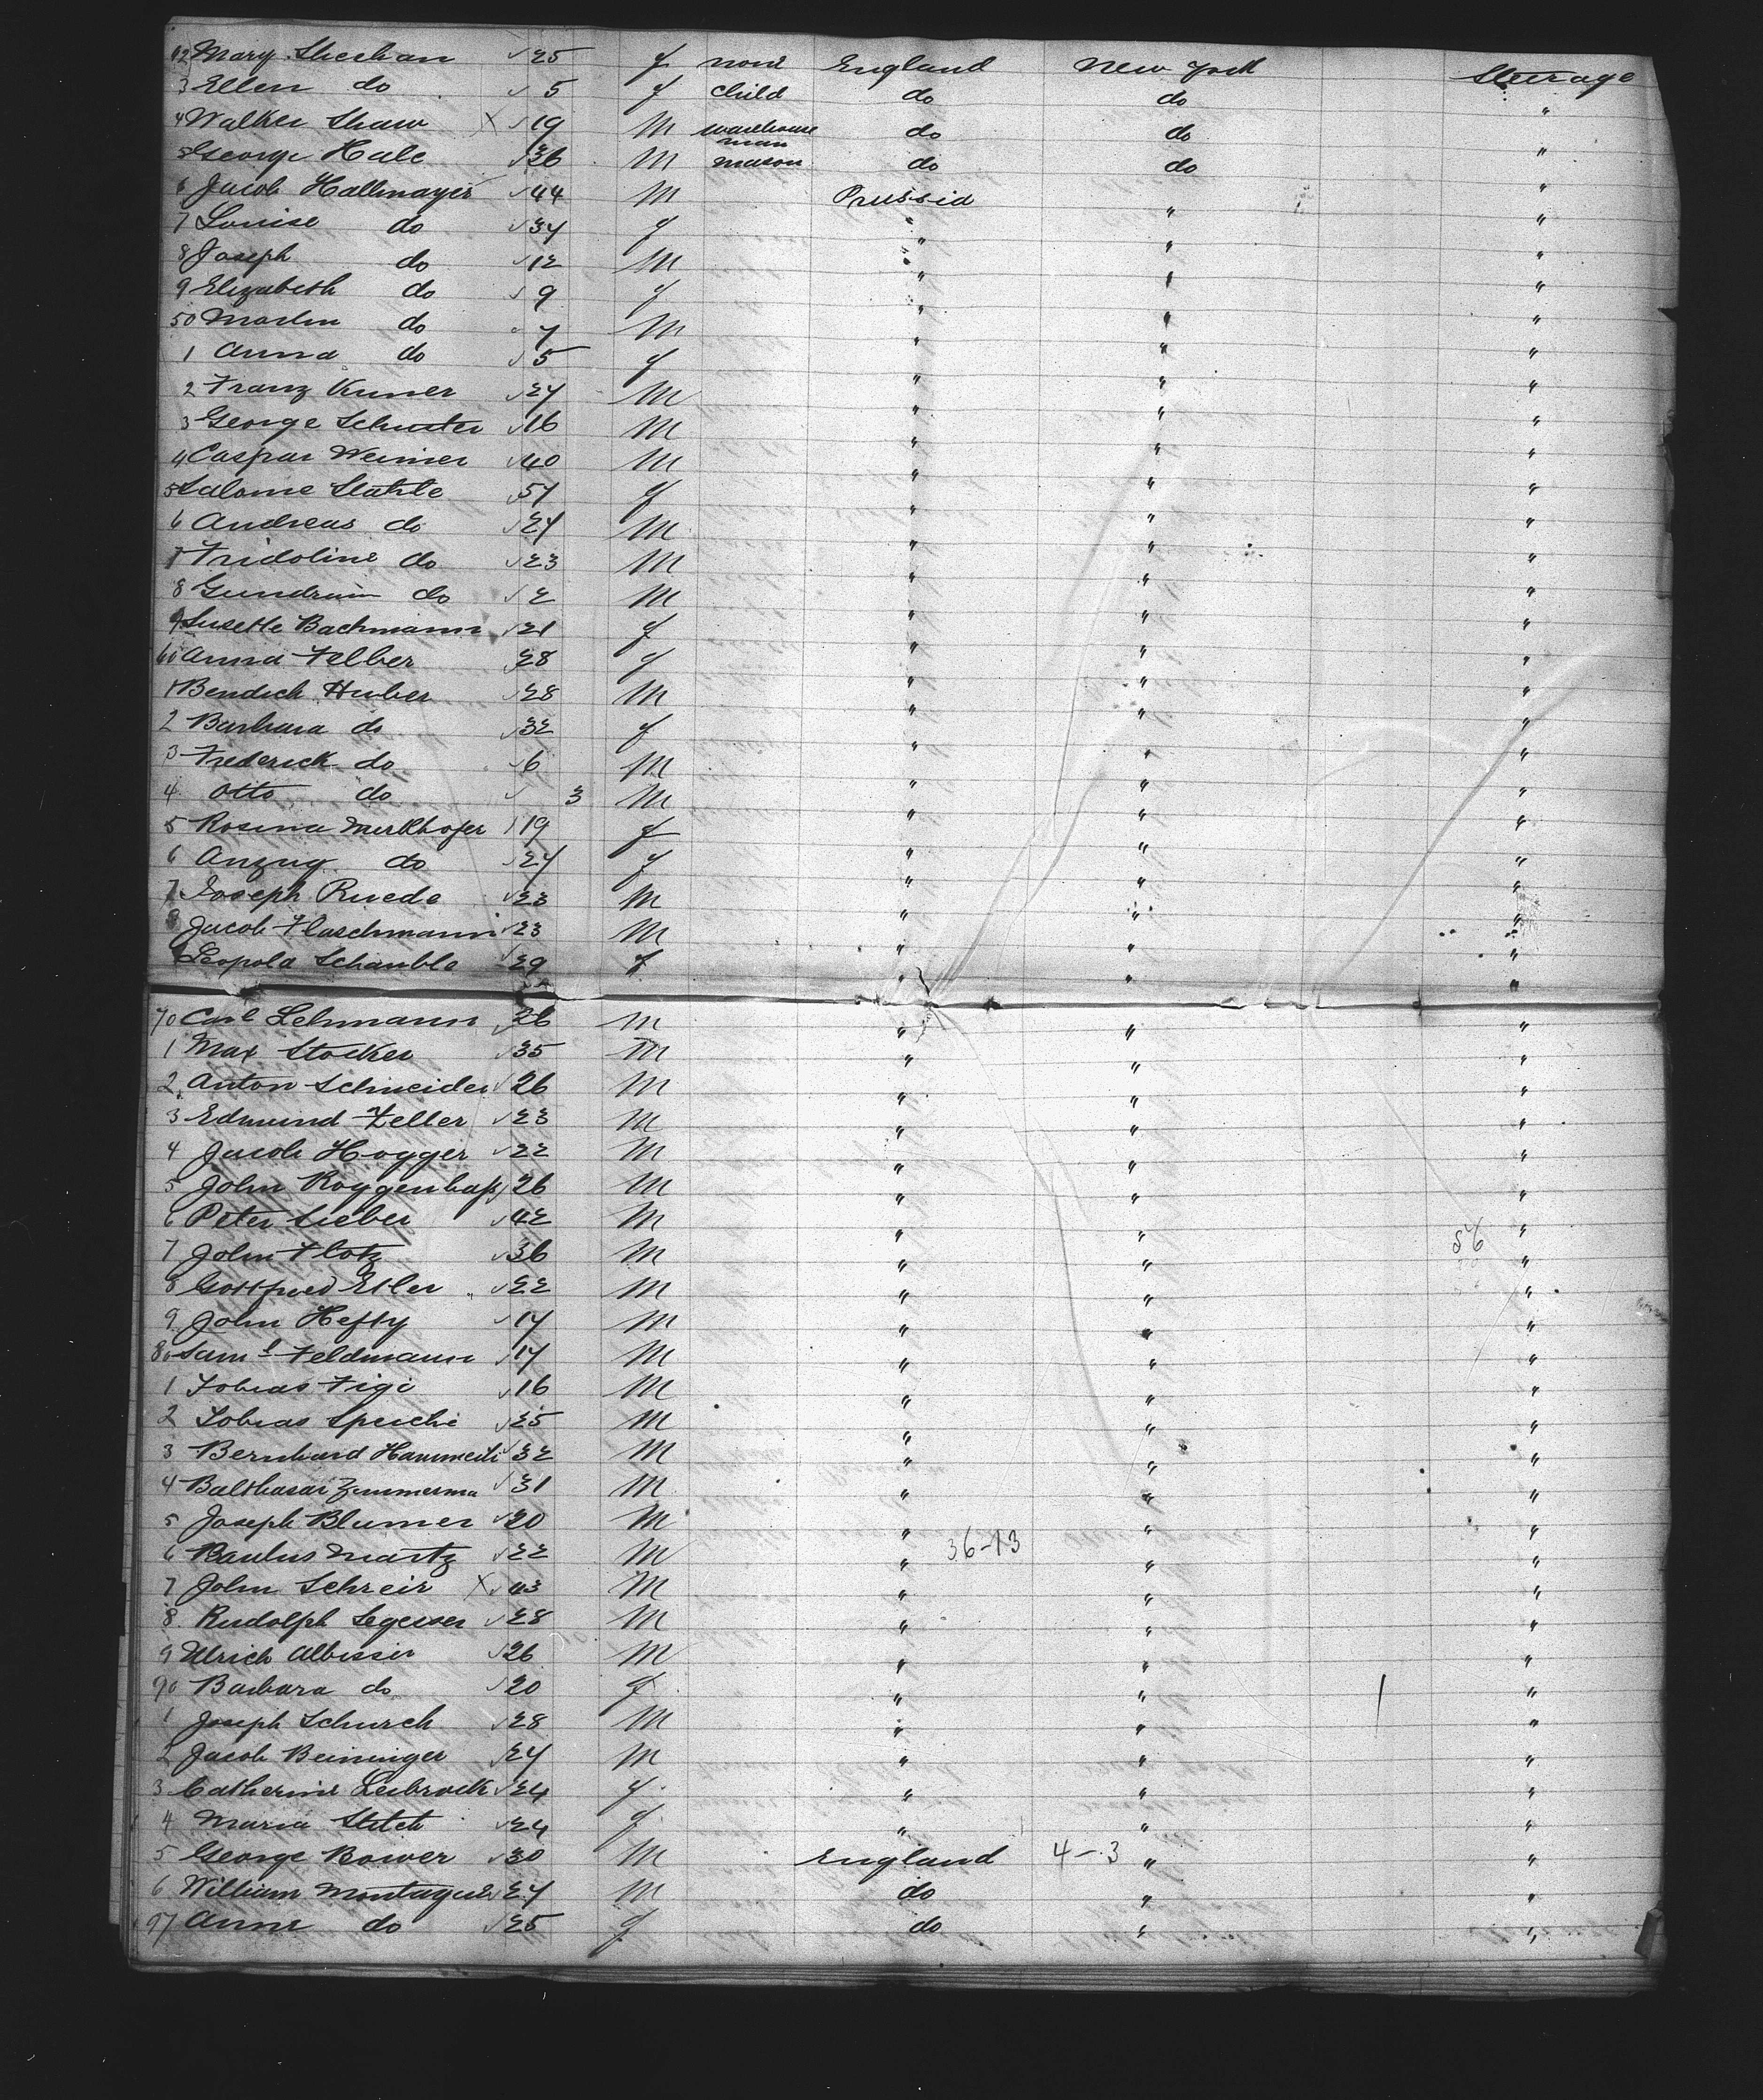 42 Mary Sheehan 25 f none England New York Steerage
3 Ellen do 5 f child do do "
4 Walker Shaw X 19 M warehouse man do do "
5 George Hale 36 M mason do do "
6 Jacob Hallmayer 44 M Prussia " "
7 Louise do 34 f " " "
8 Joseph do 12 M " " "
9 Elizabeth do 9 f " " "
50 Martin do 7 M " " "
1 Anna do 5 f " " "
2 Franz Kuner 24 M " " "
3 George Schuster 16 M " " "
4 Caspar Weimer 40 M " " "
5 Salome Stahle 54 f " " "
6 Andreas do 24 M " " "
7 Fridoline do 23 M " " "
8 Gundrum do 2 M " " "
9 Susette Bachmann 21 f " " "
60 Anna Felber 28 f " " "
1 Bendich Huber 28 M " " "
2 Barbara do 32 f " " "
3 Frederick do 6 M " " "
4 Otto do 3 M " " "
5 Rosina Merkhofer 19 f " " "
6 Anzug do 24 f " " "
7 Joseph Ruede 23 M " " "
8 Jacob Flaschmann 23 M " " "
9 Leopold Schauble 29 f " " "
70 Carl Lehmann 36 M " " "
1 Max Stocker 35 M " " "
2 Anton Schneider 26 M " " "
3 Edmund Zeller 23 M " " "
4 Jacob Hogger 22 M " " "
5 John Roggenbass 26 M " " "
6 Peter Sieber 42 M " " "
56
7 John Flotz 36 M " " "
8 Gottfried Etler 22 M " " "
9 John Hefty 17 M " " "
80 Saml Feldmann 17 M " " "
1 Tobias Figi 16 M " " "
2 Tobias Speiche 25 M " " "
3 Bernhard Hammerli 32 M " " "
4 Balthasar Zimmerma 31 M " " "
5 Joseph Blumer 20 M " " "
6 Paulus Martz 22 M " 36-13 " "
7 John Schreir X 43 M " " "
8 Rudolph Segesser 28 M " " "
9 Ulrich Albisser 26 M " " "
90 Barbara do 20 f " " "
1 Joseph Schurch 28 M " " "
2 Jacob Beininger 24 M " " "
3 Catherine Leibrock 24 f " " "
4 Maria Stitch 24 f " " "
5 George Bower 30 M England 4-3 " "
6 William Montague 27 M do " "
97 Anne do 25 f do " "